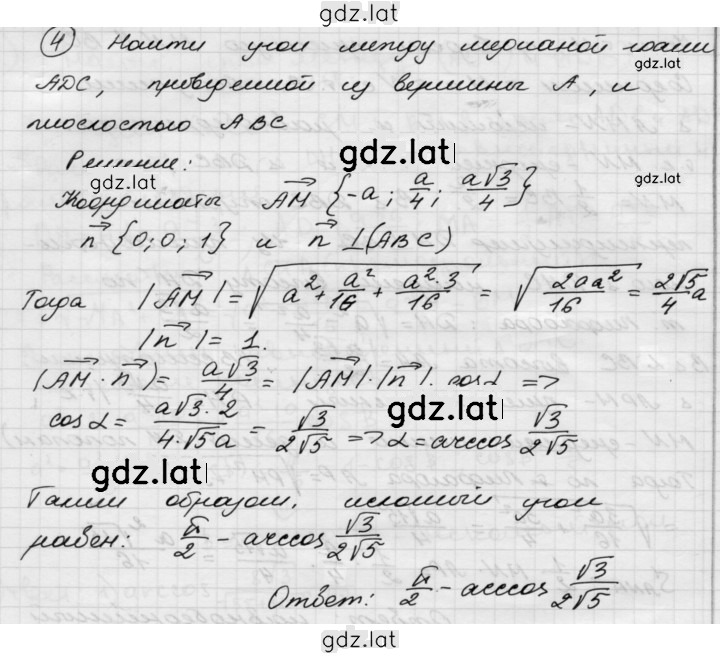 gdz.lat
④ Найти угол между медианой грани
gdz.lat
ADC, проведенной из вершины A, и
плоскостью ABC
gdz.lat
Решение:
gdz.lat
gdz.lat
Координаты AM⃗ {-a; a/4; a√3/4}
n⃗ {0; 0; 1} и n⃗ ⊥ (ABC)
Тогда |AM⃗| = √(a² + a²/16 + a²·3/16) = √(20a²/16) = 2√5/4 a
|n⃗| = 1.
(AM⃗ · n⃗) = a√3/4 = |AM⃗|·|n⃗|. cosα =>
cosα = a√3·2/4·√5a = √3/2√5 => α = arccos √3/2√5
gdz.lat
gdz.lat
Таким образом, искомый угол
равен: π/2 - arccos √3/2√5
Ответ: π/2 - arccos √3/2√5
gdz.lat